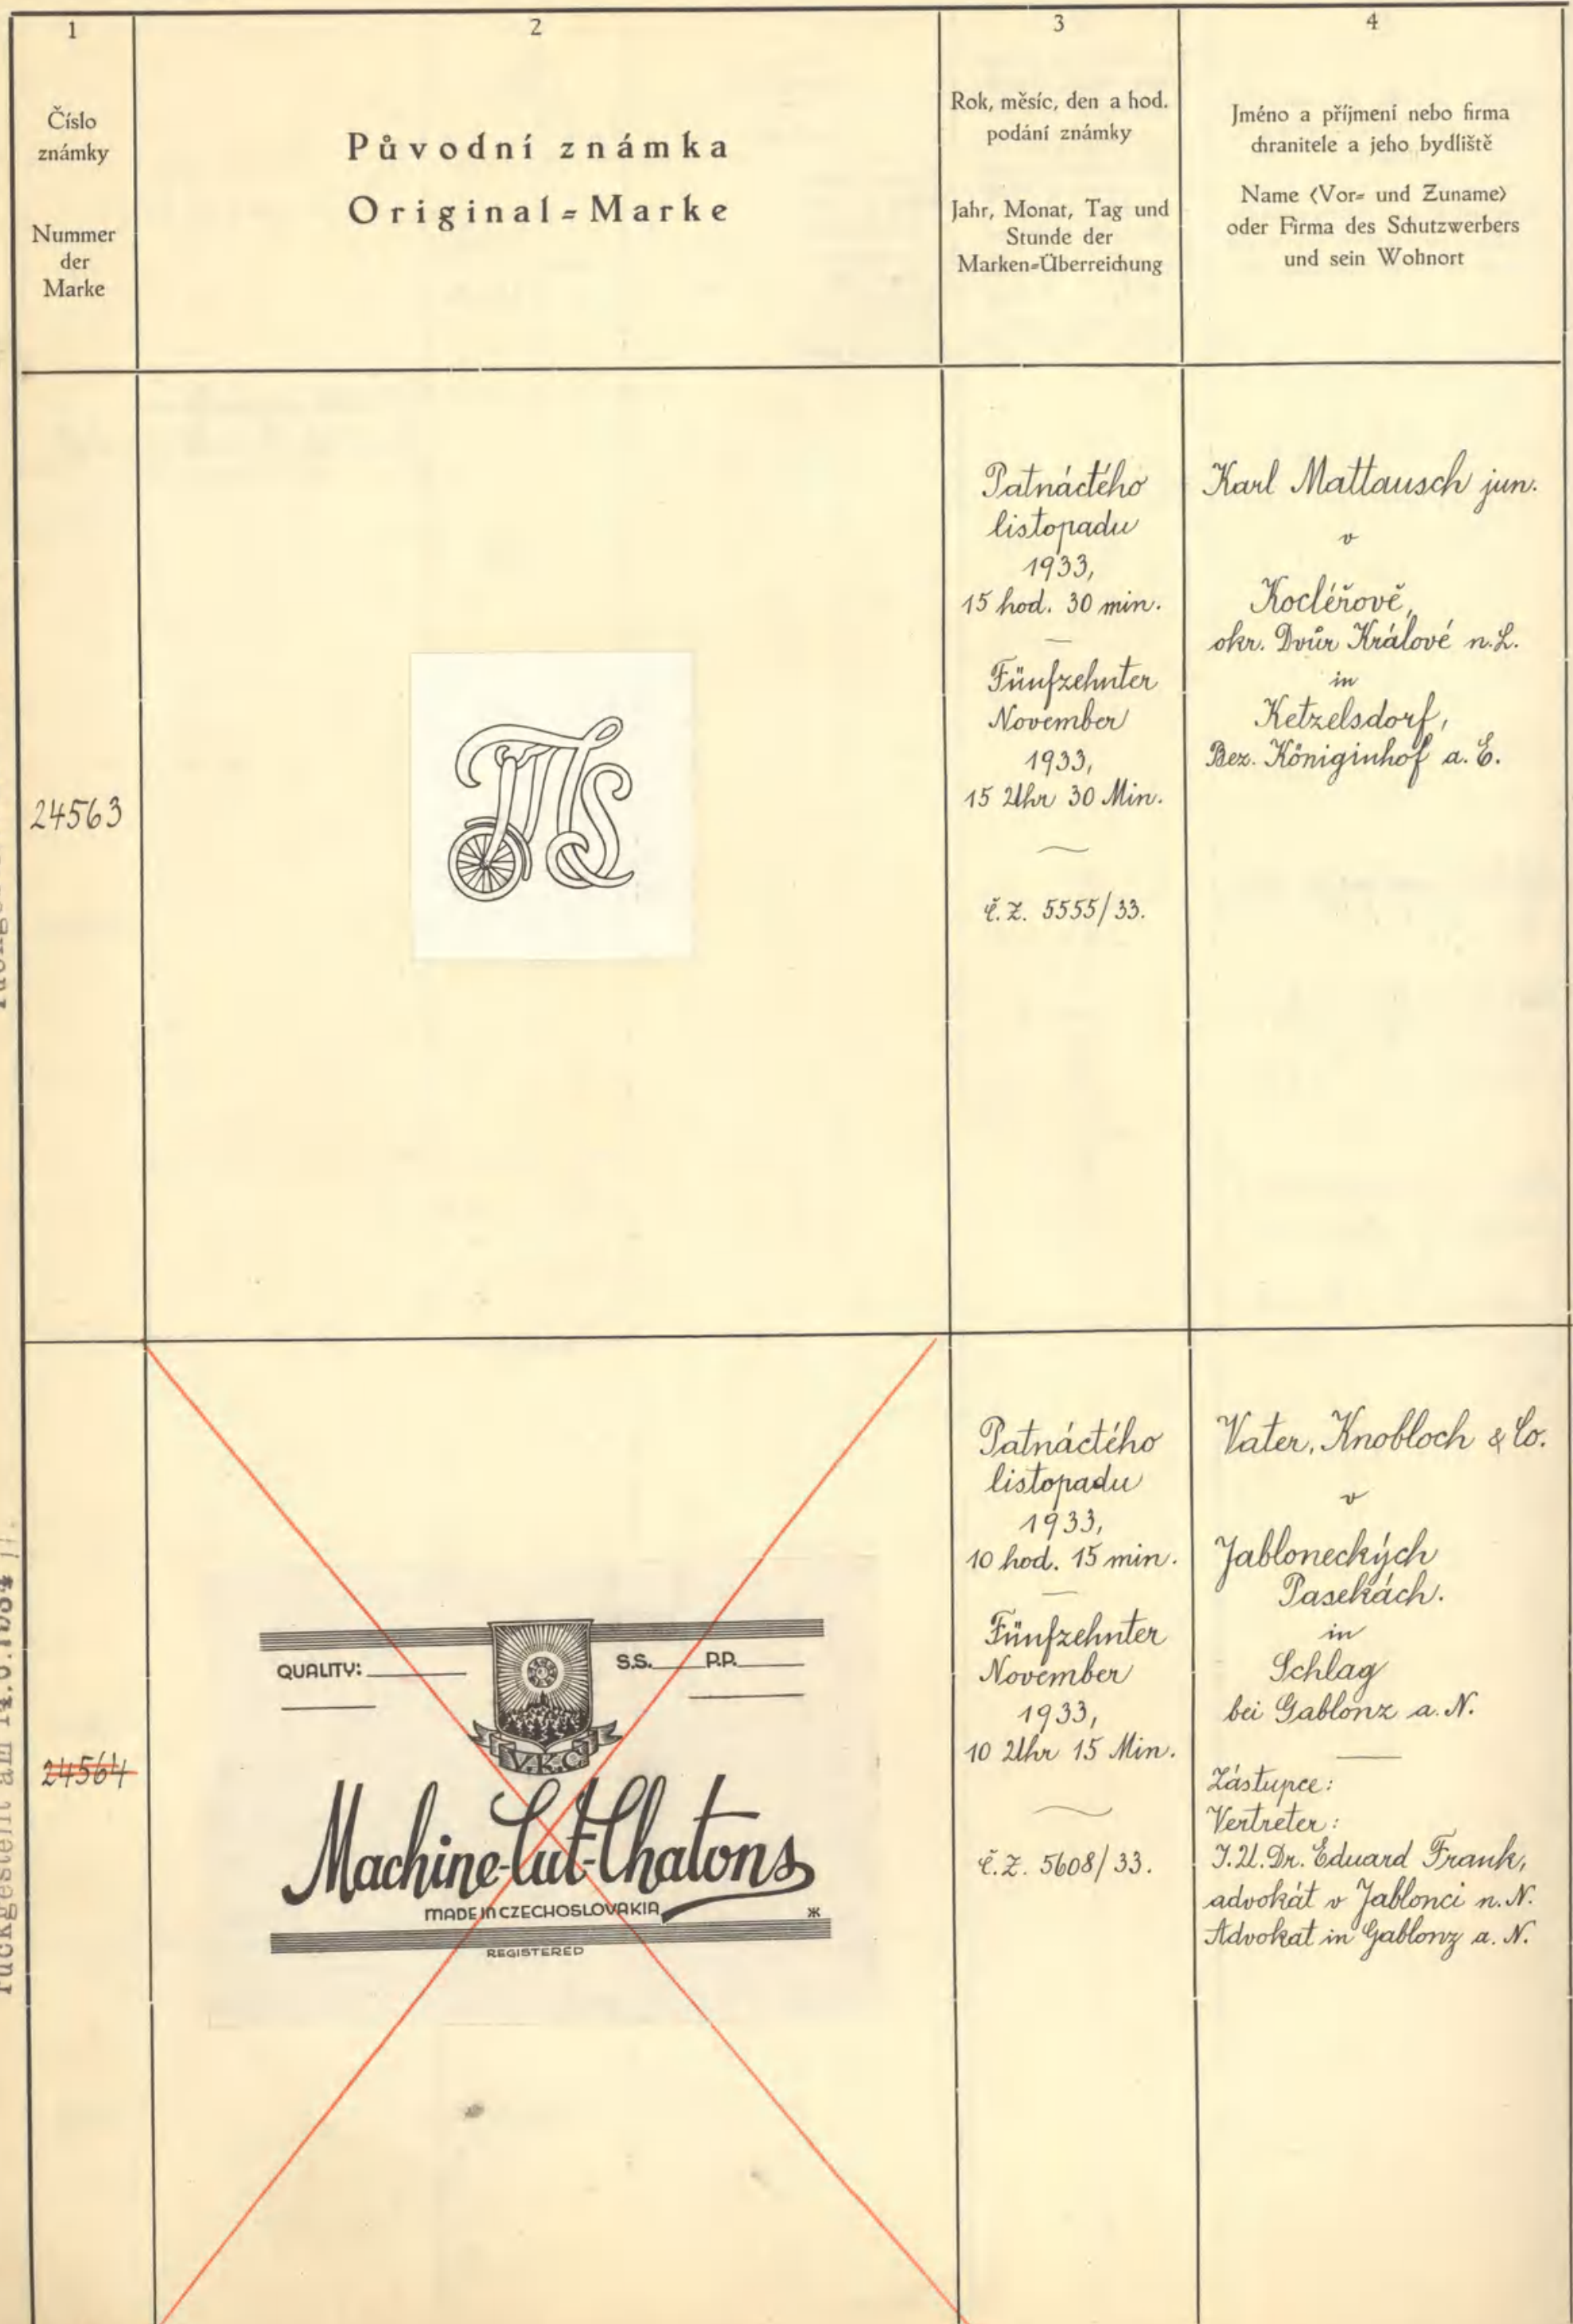 1
Číslo
známky
Nummer
der
Marke
2
Původní známka
Original=Marke
3
Rok, měsíc, den a hod.
podání známky
Jahr, Monat, Tag und
Stunde der
Marken=Überreichung
4
Jméno a příjmení nebo firma
chranitele a jeho bydliště
Name (Vor= und Zuname)
oder Firma des Schutzwerbers
und sein Wohnort
24563
Patnáctého
listopadu
1933,
15 hod. 30 min.
Fünfzehnter
November
1933,
15 Uhr 30 Min.
č.z. 5555/33.
Karl Mattausch jun.
v
Kocléřově,
okr. Dvůr Králové n.L.
in
Ketzelsdorf,
Bez. Königinhof a. E.
24564
QUALITY:
S.S. P.P.
V.K.C.
Machine-Cut-Chatons
MADE IN CZECHOSLOVAKIA
REGISTERED
Patnáctého
listopadu
1933,
10 hod. 15 min.
Fünfzehnter
November
1933,
10 Uhr 15 Min.
č.z. 5608/33.
Vater, Knobloch & Co.
v
Jabloneckých
Pasekách.
in
Schlag
bei Gablonz a. N.
Zástupce:
Vertreter:
J.U.Dr. Eduard Frank,
advokát v Jablonci n. N.
Advokat in Gablonz a. N.